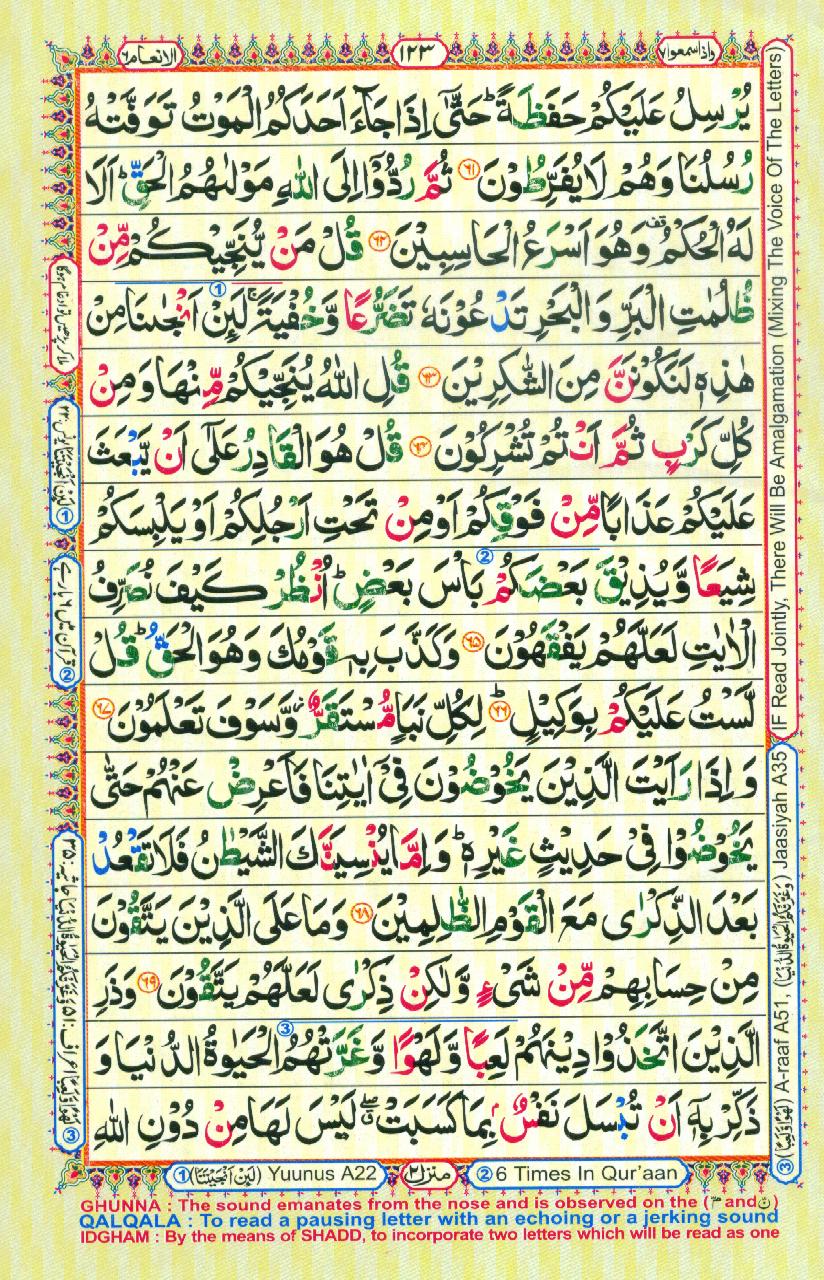 الانعام ٦
١٢٣
واذا سمعوا ٧
يُرْسِلُ عَلَيْكُمْ حَفَظَةً ؕ حَتّٰۤى اِذَا جَآءَ اَحَدَكُمُ الْمَوْتُ تَوَفَّتْهُ
رُسُلُنَا وَهُمْ لَا يُفَرِّطُوْنَ ﴿٦١﴾ ثُمَّ رُدُّوْۤا اِلَى اللّٰهِ مَوْلٰىهُمُ الْحَقِّ ؕ اَلَا
لَهُ الْحُكْمُ وَهُوَ اَسْرَعُ الْحَاسِبِيْنَ ﴿٦٢﴾ قُلْ مَنْ يُّنَجِّيْكُمْ مِّنْ
ظُلُمٰتِ الْبَرِّ وَ الْبَحْرِ تَدْعُوْنَهٗ تَضَرُّعًا وَّخُفْيَةً ۚ لَئِنْ اَنْجٰىنَا مِنْ
هٰذِهٖ لَنَكُوْنَنَّ مِنَ الشّٰكِرِيْنَ ﴿٦٣﴾ قُلِ اللّٰهُ يُنَجِّيْكُمْ مِّنْهَا وَ مِنْ
كُلِّ كَرْبٍ ثُمَّ اَنْتُمْ تُشْرِكُوْنَ ﴿٦٤﴾ قُلْ هُوَ الْقَادِرُ عَلٰۤى اَنْ يَّبْعَثَ
عَلَيْكُمْ عَذَابًا مِّنْ فَوْقِكُمْ اَوْ مِنْ تَحْتِ اَرْجُلِكُمْ اَوْ يَلْبِسَكُمْ
شِيَعًا وَّ يُذِيْقَ بَعْضَكُمْ بَاْسَ بَعْضٍ ؕ اُنْظُرْ كَيْفَ نُصَرِّفُ
الْاٰيٰتِ لَعَلَّهُمْ يَفْقَهُوْنَ ﴿٦٥﴾ وَكَذَّبَ بِهٖ قَوْمُكَ وَهُوَ الْحَقُّ ؕ قُلْ
لَّسْتُ عَلَيْكُمْ بِوَكِيْلٍ ؕ ﴿٦٦﴾ لِكُلِّ نَبَاٍ مُّسْتَقَرٌّ ۫ وَّسَوْفَ تَعْلَمُوْنَ ﴿٦٧﴾
وَ اِذَا رَاَيْتَ الَّذِيْنَ يَخُوْضُوْنَ فِيْۤ اٰيٰتِنَا فَاَعْرِضْ عَنْهُمْ حَتّٰى
يَخُوْضُوْا فِيْ حَدِيْثٍ غَيْرِهٖ ؕ وَ اِمَّا يُنْسِيَنَّكَ الشَّيْطٰنُ فَلَا تَقْعُدْ
بَعْدَ الذِّكْرٰى مَعَ الْقَوْمِ الظّٰلِمِيْنَ ﴿٦٨﴾ وَمَا عَلَى الَّذِيْنَ يَتَّقُوْنَ
مِنْ حِسَابِهِمْ مِّنْ شَيْءٍ وَّلٰكِنْ ذِكْرٰى لَعَلَّهُمْ يَتَّقُوْنَ ﴿٦٩﴾ وَذَرِ
الَّذِيْنَ اتَّخَذُوْا دِيْنَهُمْ لَعِبًا وَّلَهْوًا وَّغَرَّتْهُمُ الْحَيٰوةُ الدُّنْيَا وَ
ذَكِّرْ بِهٖۤ اَنْ تُبْسَلَ نَفْسٌۢ بِمَا كَسَبَتْ ۖ لَيْسَ لَهَا مِنْ دُوْنِ اللّٰهِ
(IF Read Jointly, There Will Be Amalgamation (Mixing The Voice Of The Letters)
③ (لَهْوًا وَّلَعِبًا) A-raaf A51, (وَغَرَّتْكُمُ الْحَيٰوةُ الدُّنْيَا) Jaasiyah A35
① لَئِنْ اَنْجَيْتَنَا يونس: ٢٢
② قرآن میں ٦ بار ہے
③ لَهْوًا وَّلَعِبًا اعراف: ٥١ وَغَرَّتْكُمُ الْحَيٰوةُ الدُّنْيَا جاثيہ: ٣٥
① (لَئِنْ اَنْجَيْتَنَا) Yuunus A22
منزل ٢
② 6 Times In Qur'aan
GHUNNA : The sound emanates from the nose and is observed on the (مّ and نّ)
QALQALA : To read a pausing letter with an echoing or a jerking sound
IDGHAM : By the means of SHADD, to incorporate two letters which will be read as one